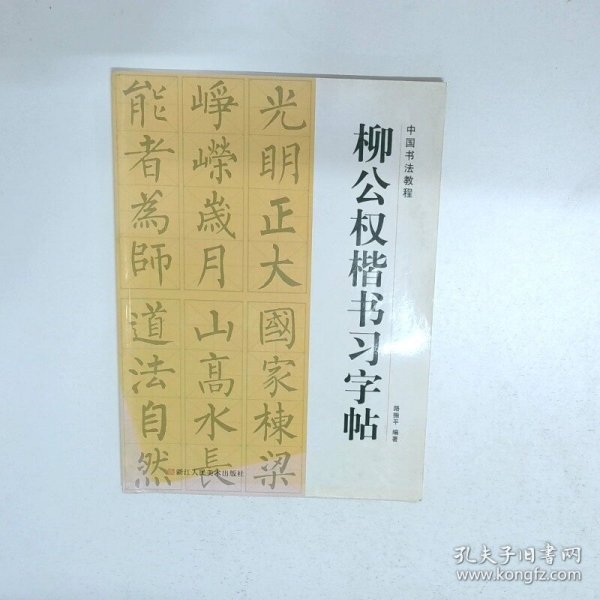 中国书法教程
柳公权楷书习字帖
路振平 编著
光明正大
國家棟梁
峥嶸歲月
山高水長
能者為師
道法自然
浙江人民美术出版社
孔夫子旧书网
www.kongfz.com